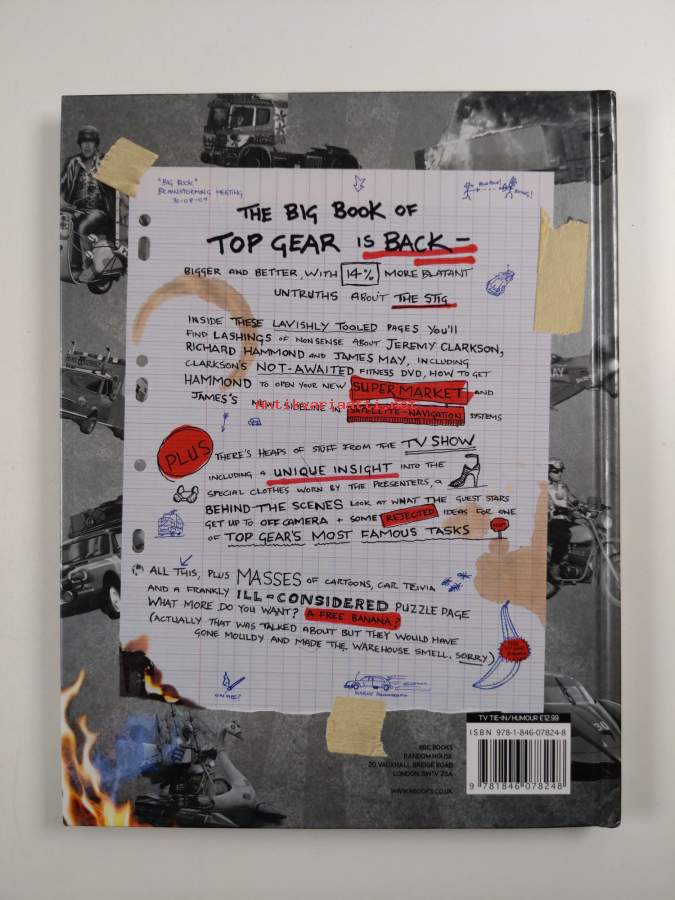 "BIG BOOK"
BRAINSTORMING MEETING
THE BIG BOOK OF
TOP GEAR IS BACK -
BIGGER AND BETTER, WITH 14% MORE BLATANT
UNTRUTHS ABOUT THE STIG
INSIDE THESE LAVISHLY TOOLED PAGES YOU'LL
FIND LASHINGS OF NONSENSE ABOUT JEREMY CLARKSON,
RICHARD HAMMOND AND JAMES MAY, INCLUDING
CLARKSON'S NOT-AWAITED FITNESS DVD, HOW TO GET
HAMMOND TO OPEN YOUR NEW SUPER MARKET AND
JAMES'S NEW SIDELINE IN SATELLITE-NAVIGATION SYSTEMS
PLUS
THERE'S HEAPS OF STUFF FROM THE TV SHOW
INCLUDING A UNIQUE INSIGHT INTO THE
SPECIAL CLOTHES WORN BY THE PRESENTERS, A
BEHIND-THE SCENES LOOK AT WHAT THE GUEST STARS
GET UP TO OFF CAMERA + SOME REJECTED IDEAS FOR ONE
OF TOP GEAR'S MOST FAMOUS TASKS
ALL THIS, PLUS MASSES OF CARTOONS, CAR TRIVIA
AND A FRANKLY ILL-CONSIDERED PUZZLE PAGE
WHAT MORE DO YOU WANT? A FREE BANANA?
(ACTUALLY THAT WAS TALKED ABOUT BUT THEY WOULD HAVE
GONE MOULDY AND MADE THE WAREHOUSE SMELL. SORRY)
TV TIE-IN/HUMOUR £12.99
ISBN 978-1-846-07824-8
9 781846 078248
BBC BOOKS
RANDOM HOUSE
20 VAUXHALL BRIDGE ROAD
LONDON SW1V 2SA
WWW.RBOOKS.CO.UK
30